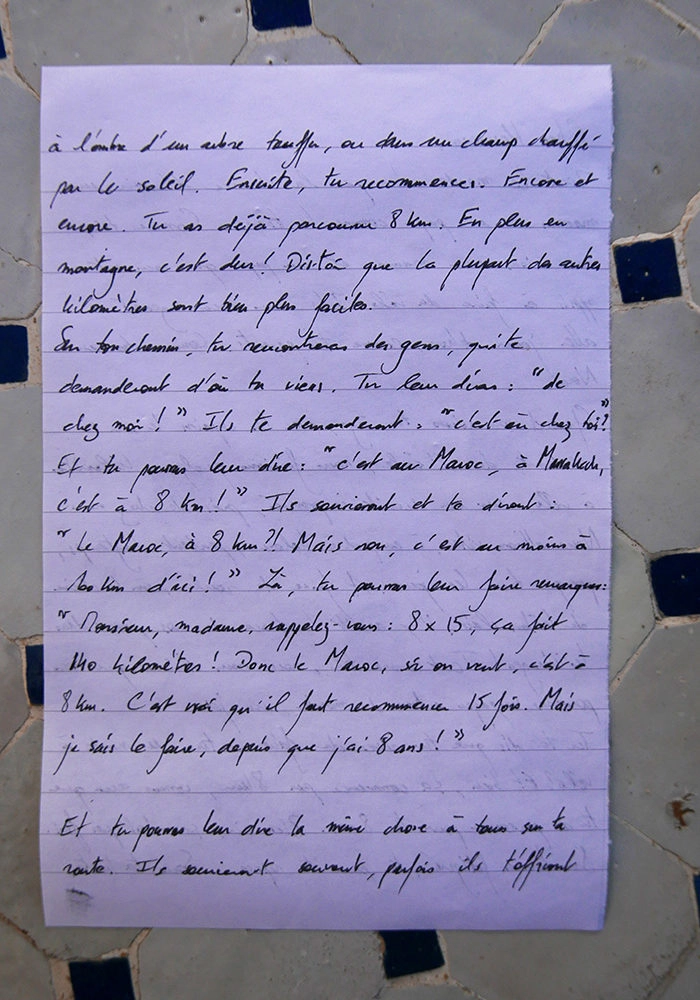 à l'ombre d'un arbre touffu, ou dans un champ chauffé
par le soleil. Ensuite, tu recommences. Encore et
encore. Tu as déjà parcouru 8 km. En plus en
montagne, c'est dur! Dis-toi que la plupart des autres
kilomètres sont bien plus faciles.
Sur ton chemin, tu rencontreras des gens, qui te
demanderont d'où tu viens. Tu leur diras : "de
chez moi ! " Ils te demanderont : "c'est où chez toi?"
Et tu pourras leur dire : "c'est au Maroc, à Marrakech,
c'est à 8 km ! " Ils souriront et te diront :
" Le Maroc, à 8 km?! Mais non, c'est au moins à
km d'ici ! " Là, tu pourras leur faire remarquer:
" Monsieur, madame, rappelez-vous : 8 x 15, ça fait
kilomètres ! Donc le Maroc, si on veut, c'est à
8 km. C'est vrai qu'il faut recommencer 15 fois. Mais
je sais le faire, depuis que j'ai 8 ans ! "
Et tu pourras leur dire la même chose à tous sur ta
route. Ils souriront souvent, parfois ils t'offriront